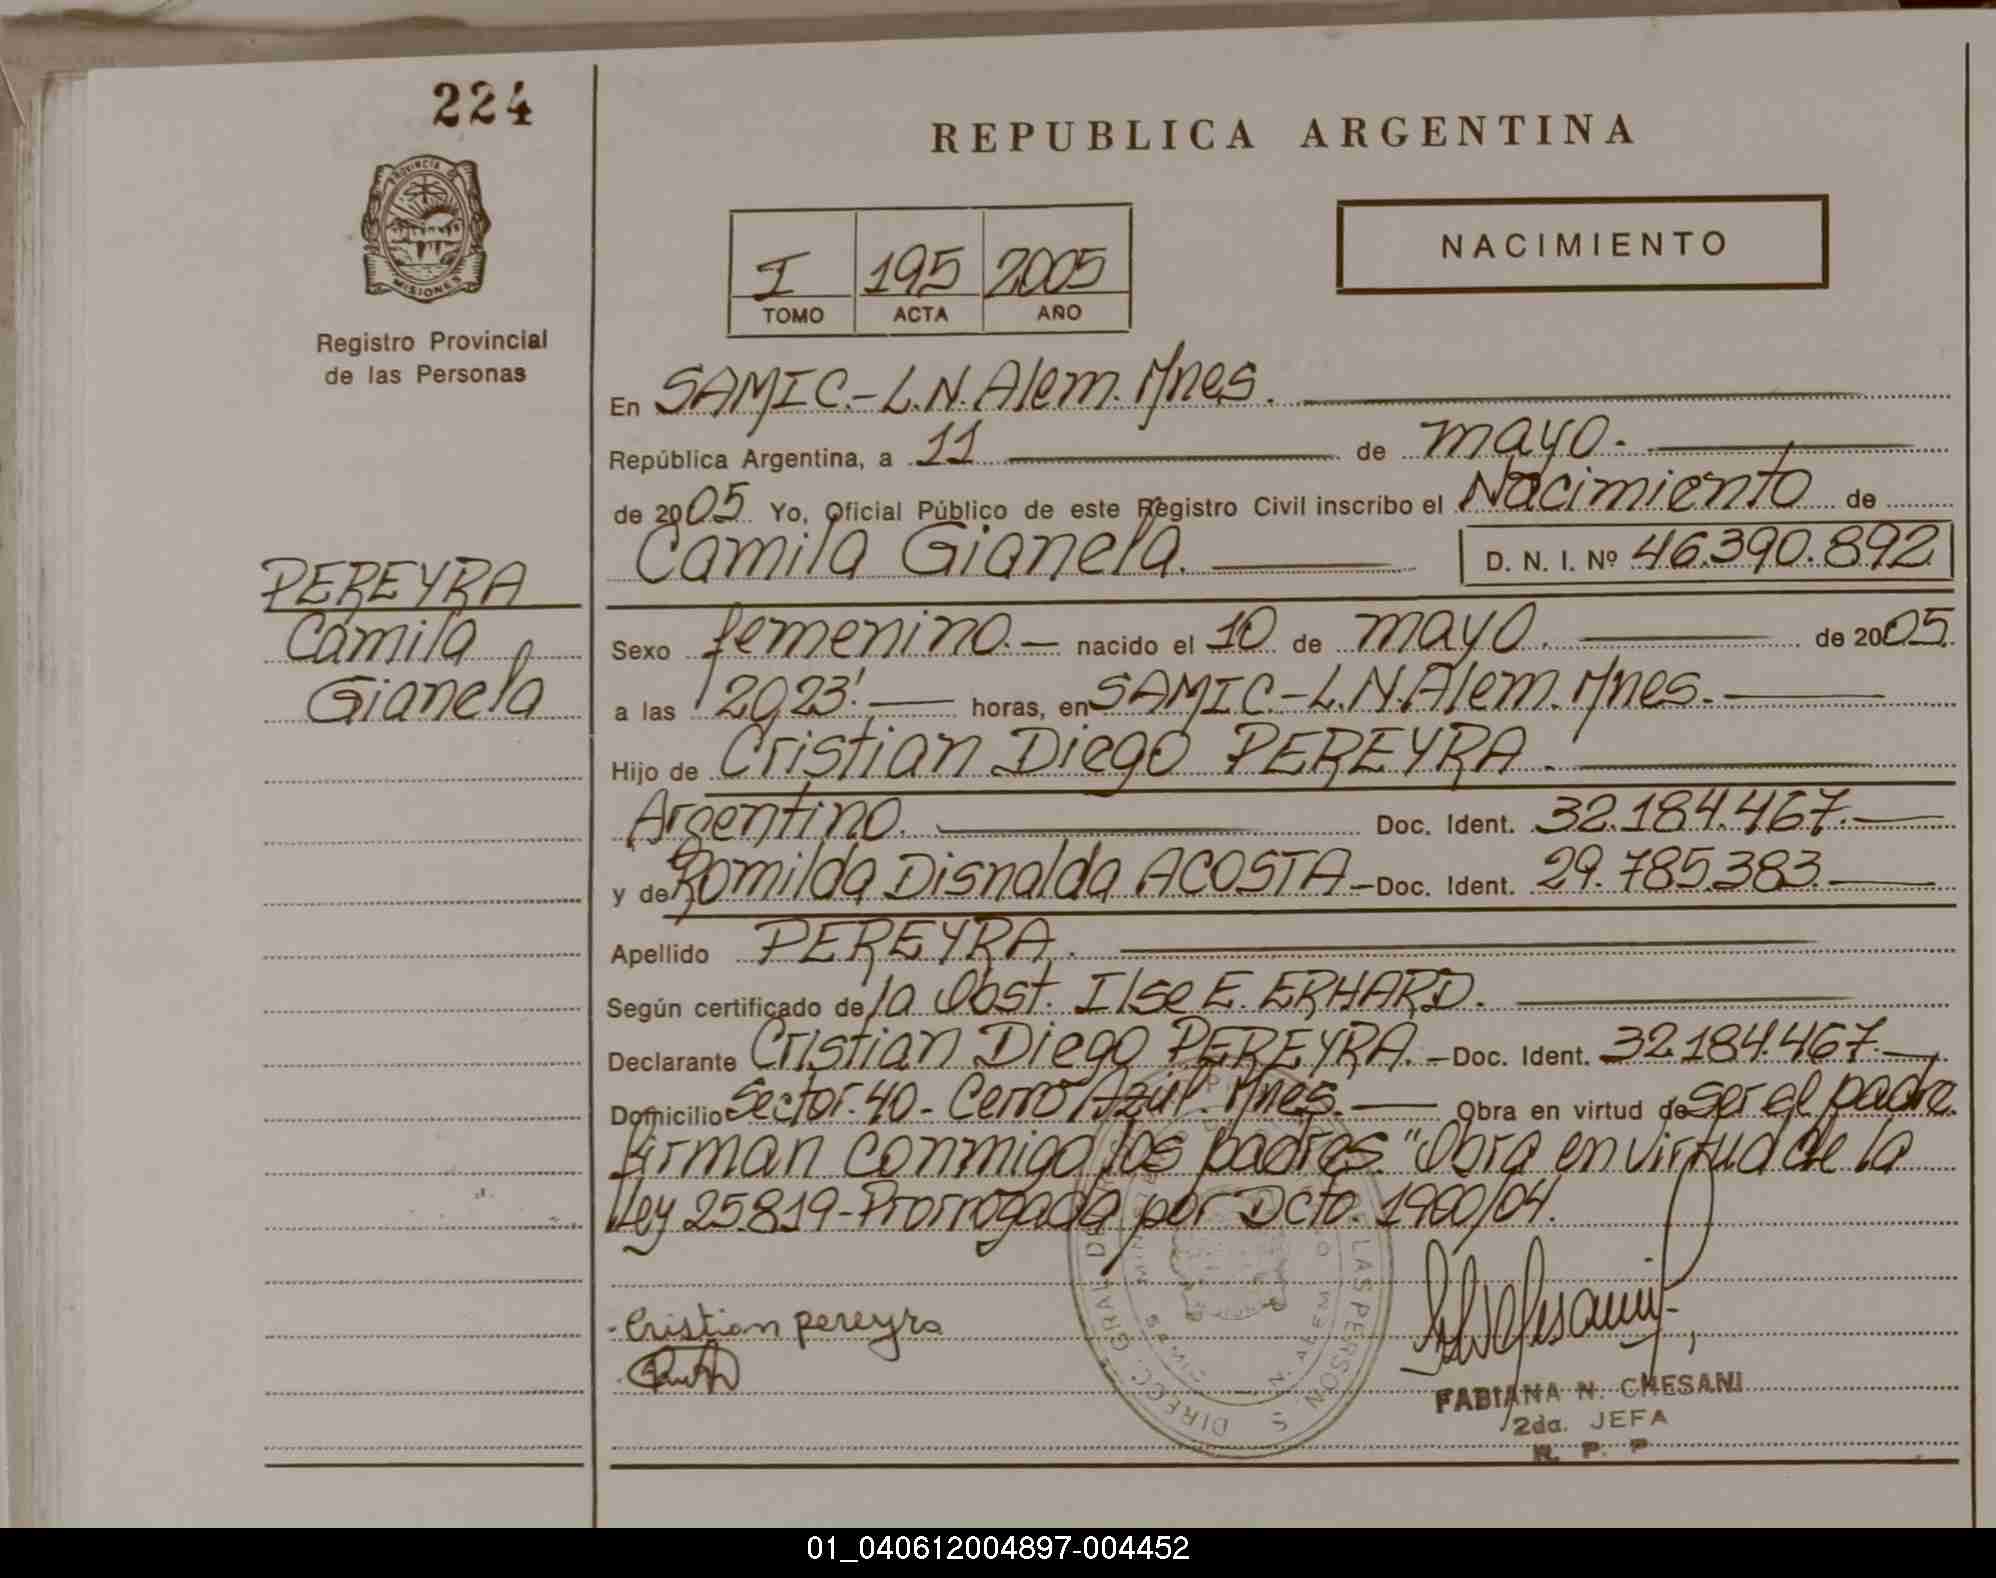 224
REPUBLICA ARGENTINA
PROVINCIA DE
MISIONES
Registro Provincial
de las Personas
I 195 2005
TOMO ACTA AÑO
NACIMIENTO
En SAMIC.-L.N.Alem.Mnes.
República Argentina, a 11 de mayo.
de 2005 Yo, Oficial Público de este Registro Civil inscribo el Nacimiento de
Camila Gianela. D. N. I. Nº 46.390.892
PEREYRA
Camila
Gianela
Sexo femenino.- nacido el 10 de mayo. de 2005.
a las 20,23'. horas, en SAMIC.-L.N.Alem.Mnes.
Hijo de Cristian Diego PEREYRA.
Argentino. Doc. Ident. 32.184.467.
y de Romilda Disnalda ACOSTA- Doc. Ident. 29.785.383.
Apellido PEREYRA.
Según certificado de la Obst. Ilse E. ERHARD.
Declarante Cristian Diego PEREYRA.- Doc. Ident. 32.184.467.
Domicilio Sector.40- Cerro Azúl. Mnes. Obra en virtud de ser el padre.
Firman conmigo los padres. "Obra en virtud de la
Ley 25819-Prorrogada por Dcto. 1900/04.
Cristian pereyra
FABIANA N. CHESANI
2da. JEFA
R. P. P
01_040612004897-004452